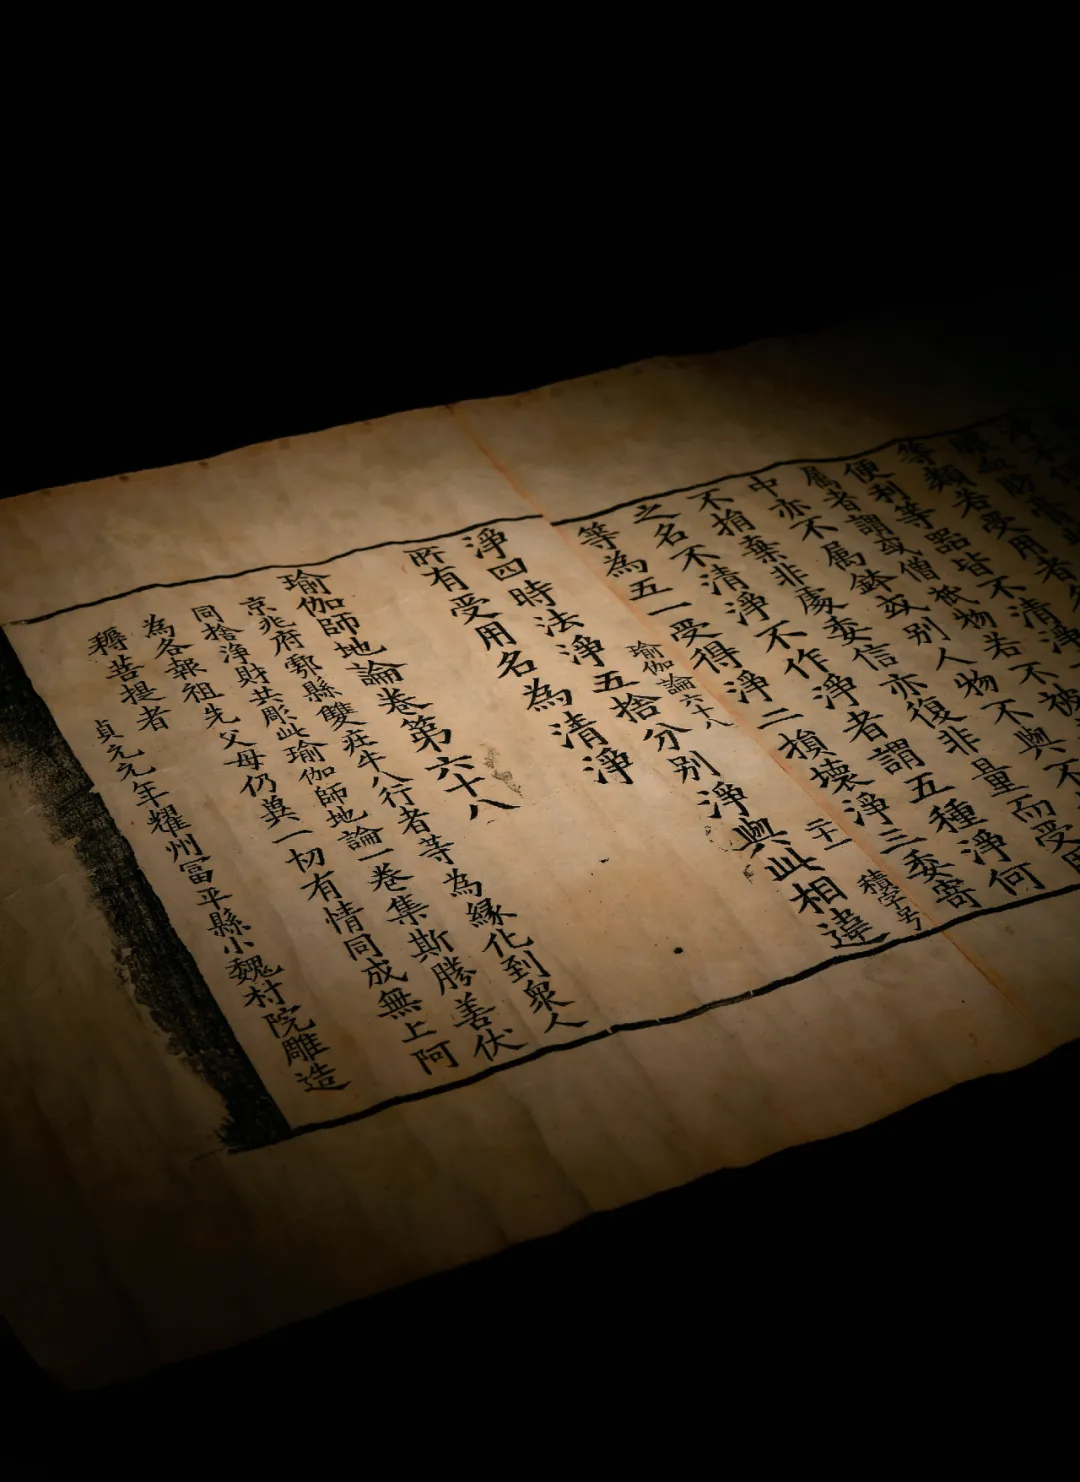 等類若受用者
便利等器皆不清淨
属者謂或僧祇物若不被
中亦不属鉢或別人物不與不
不捐棄非處委信亦復非量而受用
之名不清淨不作淨者謂五種淨何
等為五一受得淨二損壞淨三委寄
瑜伽論六十八 二十一 積字号
淨四時法淨五捨分別淨與此相違
所有受用名為清淨
瑜伽師地論卷第六十八
京兆府鄠縣雙莊牛八行者等為縁化到衆人
同捨淨財共彫此瑜伽師地論一卷集斯勝善伏
為各報祖先父母仍兾一切有情同成無上阿
耨菩提者 貞元元年耀州富平縣小魏村院雕造